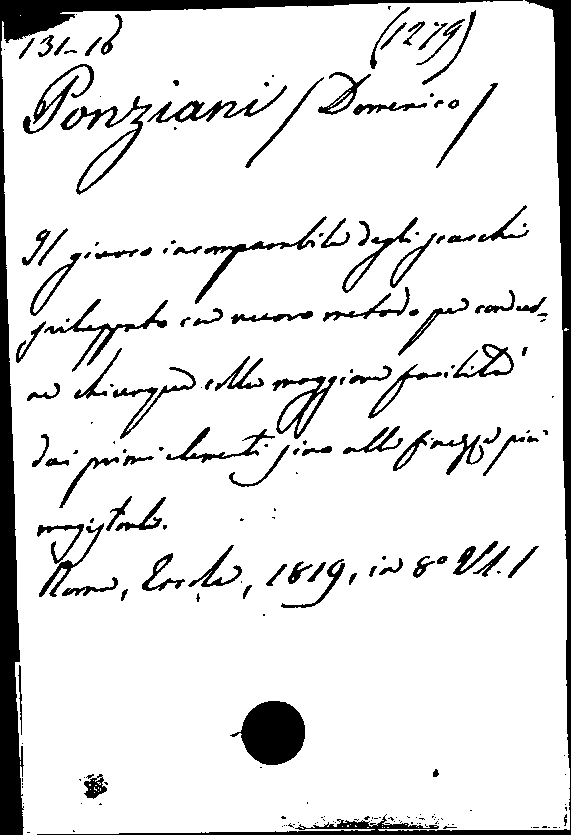 131-16 (1279)
Ponziani (Domenico)
Il giuoco incomparabile degli scacchi
sviluppato con nuovo metodo per condur-
re chiunque colla maggiore facilità
dai primi elementi sino alle finezze più
magistrali.
Roma, Ercole, 1819, in 8° Vl. 1